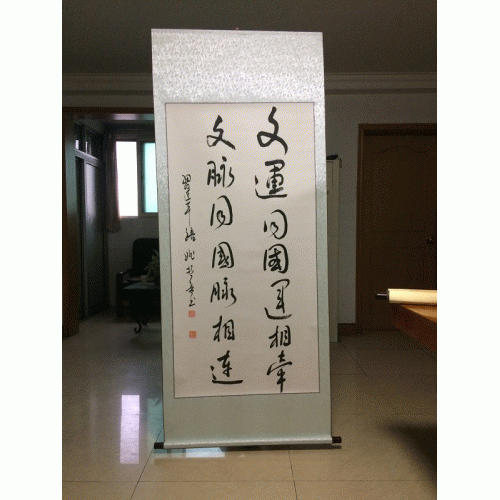 文運同國運相牽
文脉同國脉相連